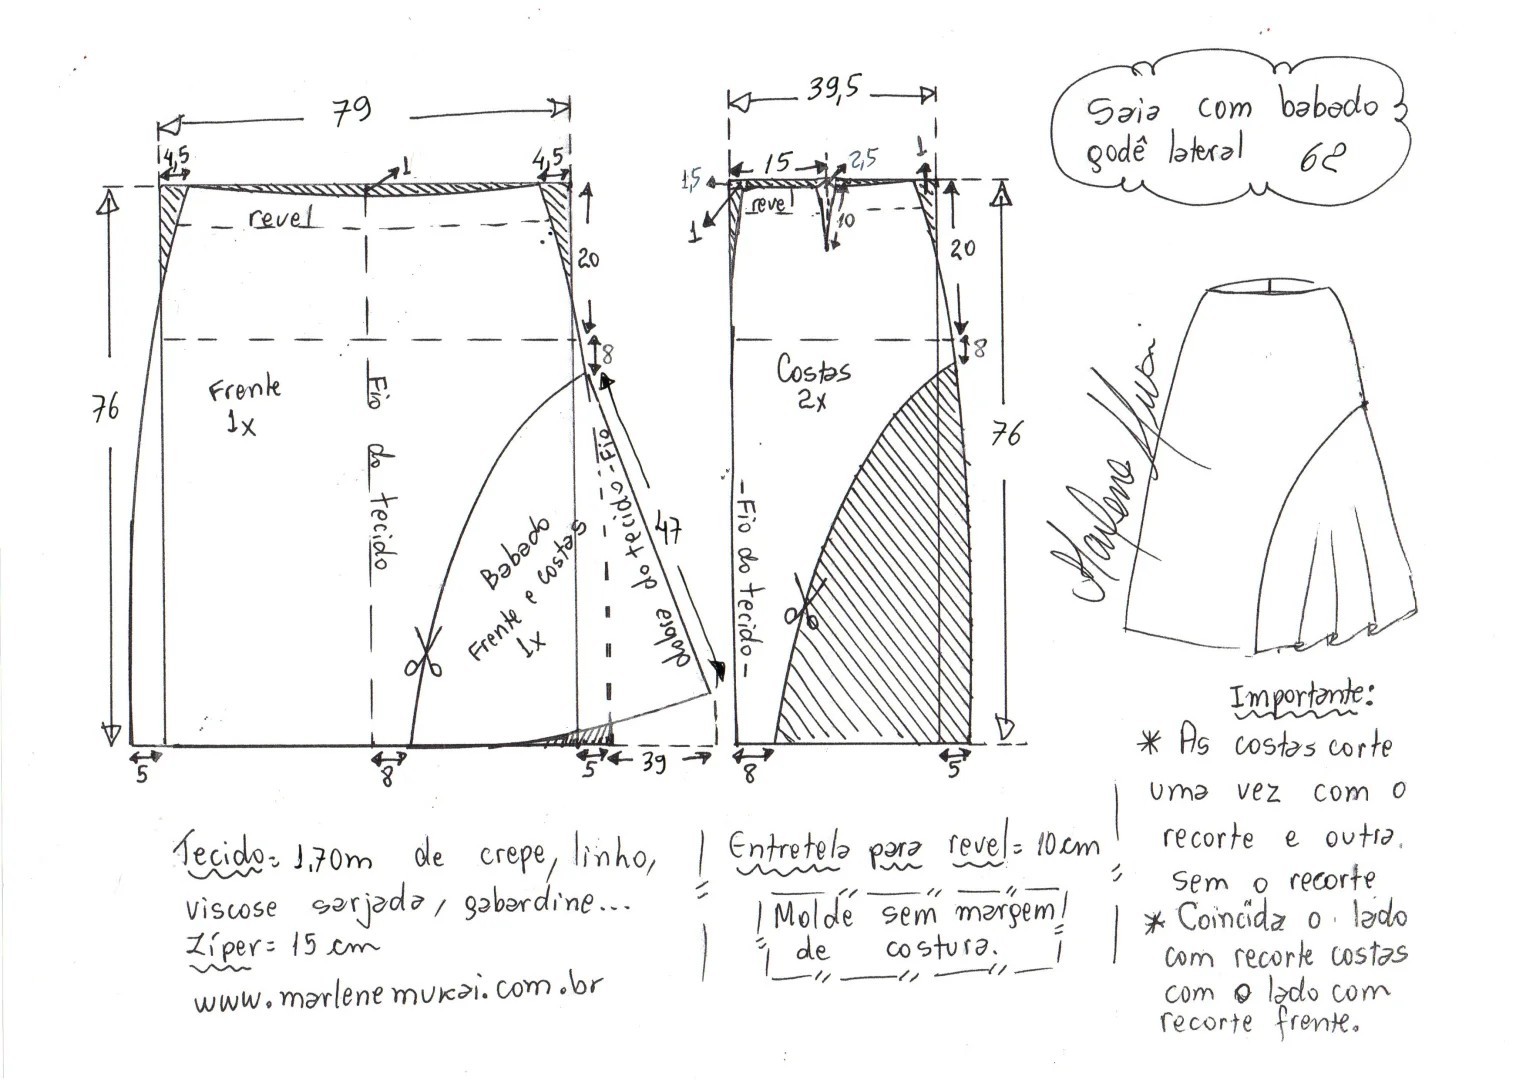 Saia com babado
godê lateral 68
79
4,5
1
4,5
revel
20
8
76
Frente
1x
Fio do tecido
Babado
Frente e costas
1x
Fio do tecido
dobra
47
5
8
5
39
39,5
1,5
15
2,5
1
revel
10
1
20
8
Costas
2x
76
Fio do tecido
8
5
Marlene Mukai
Importante:
* As costas corte
uma vez com o
recorte e outra
sem o recorte
* Coincida o lado
com recorte costas
com o lado com
recorte frente.
Tecido= 1,70m de crepe, linho,
viscose sarjada, gabardine...
Zíper= 15 cm
www.marlenemukai.com.br
Entretela para revel= 10cm
Molde sem margem
de costura.